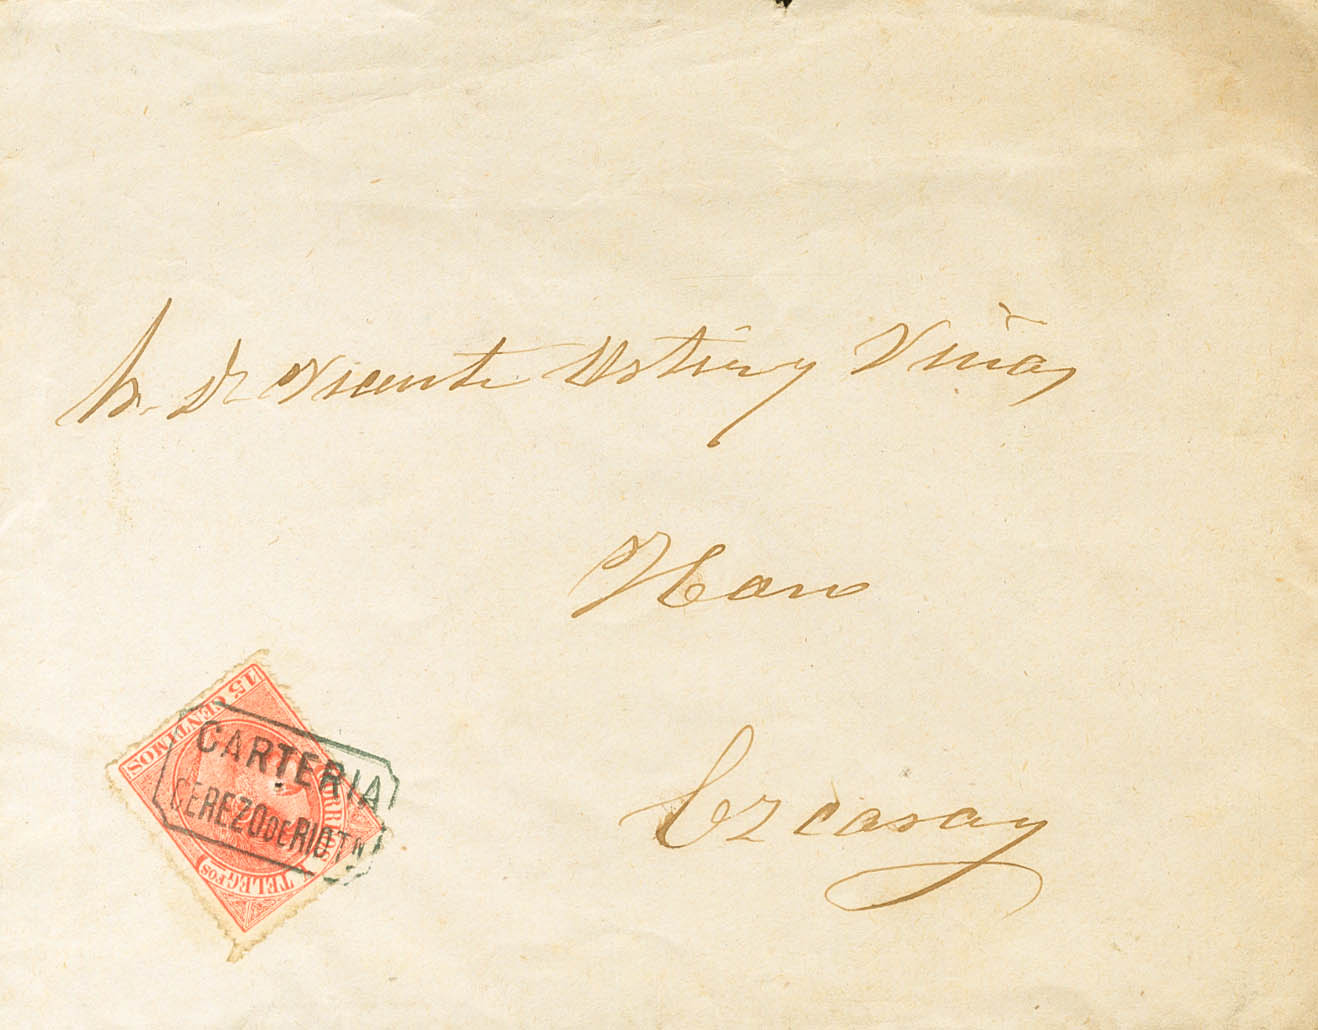 Sr. Dn Vicente Ortiz y Viña
Haro
Ezcaray
15 CENTIMOS
CORREOS Y TELEGFOS
CARTERIA
CEREZO DE RIOTN